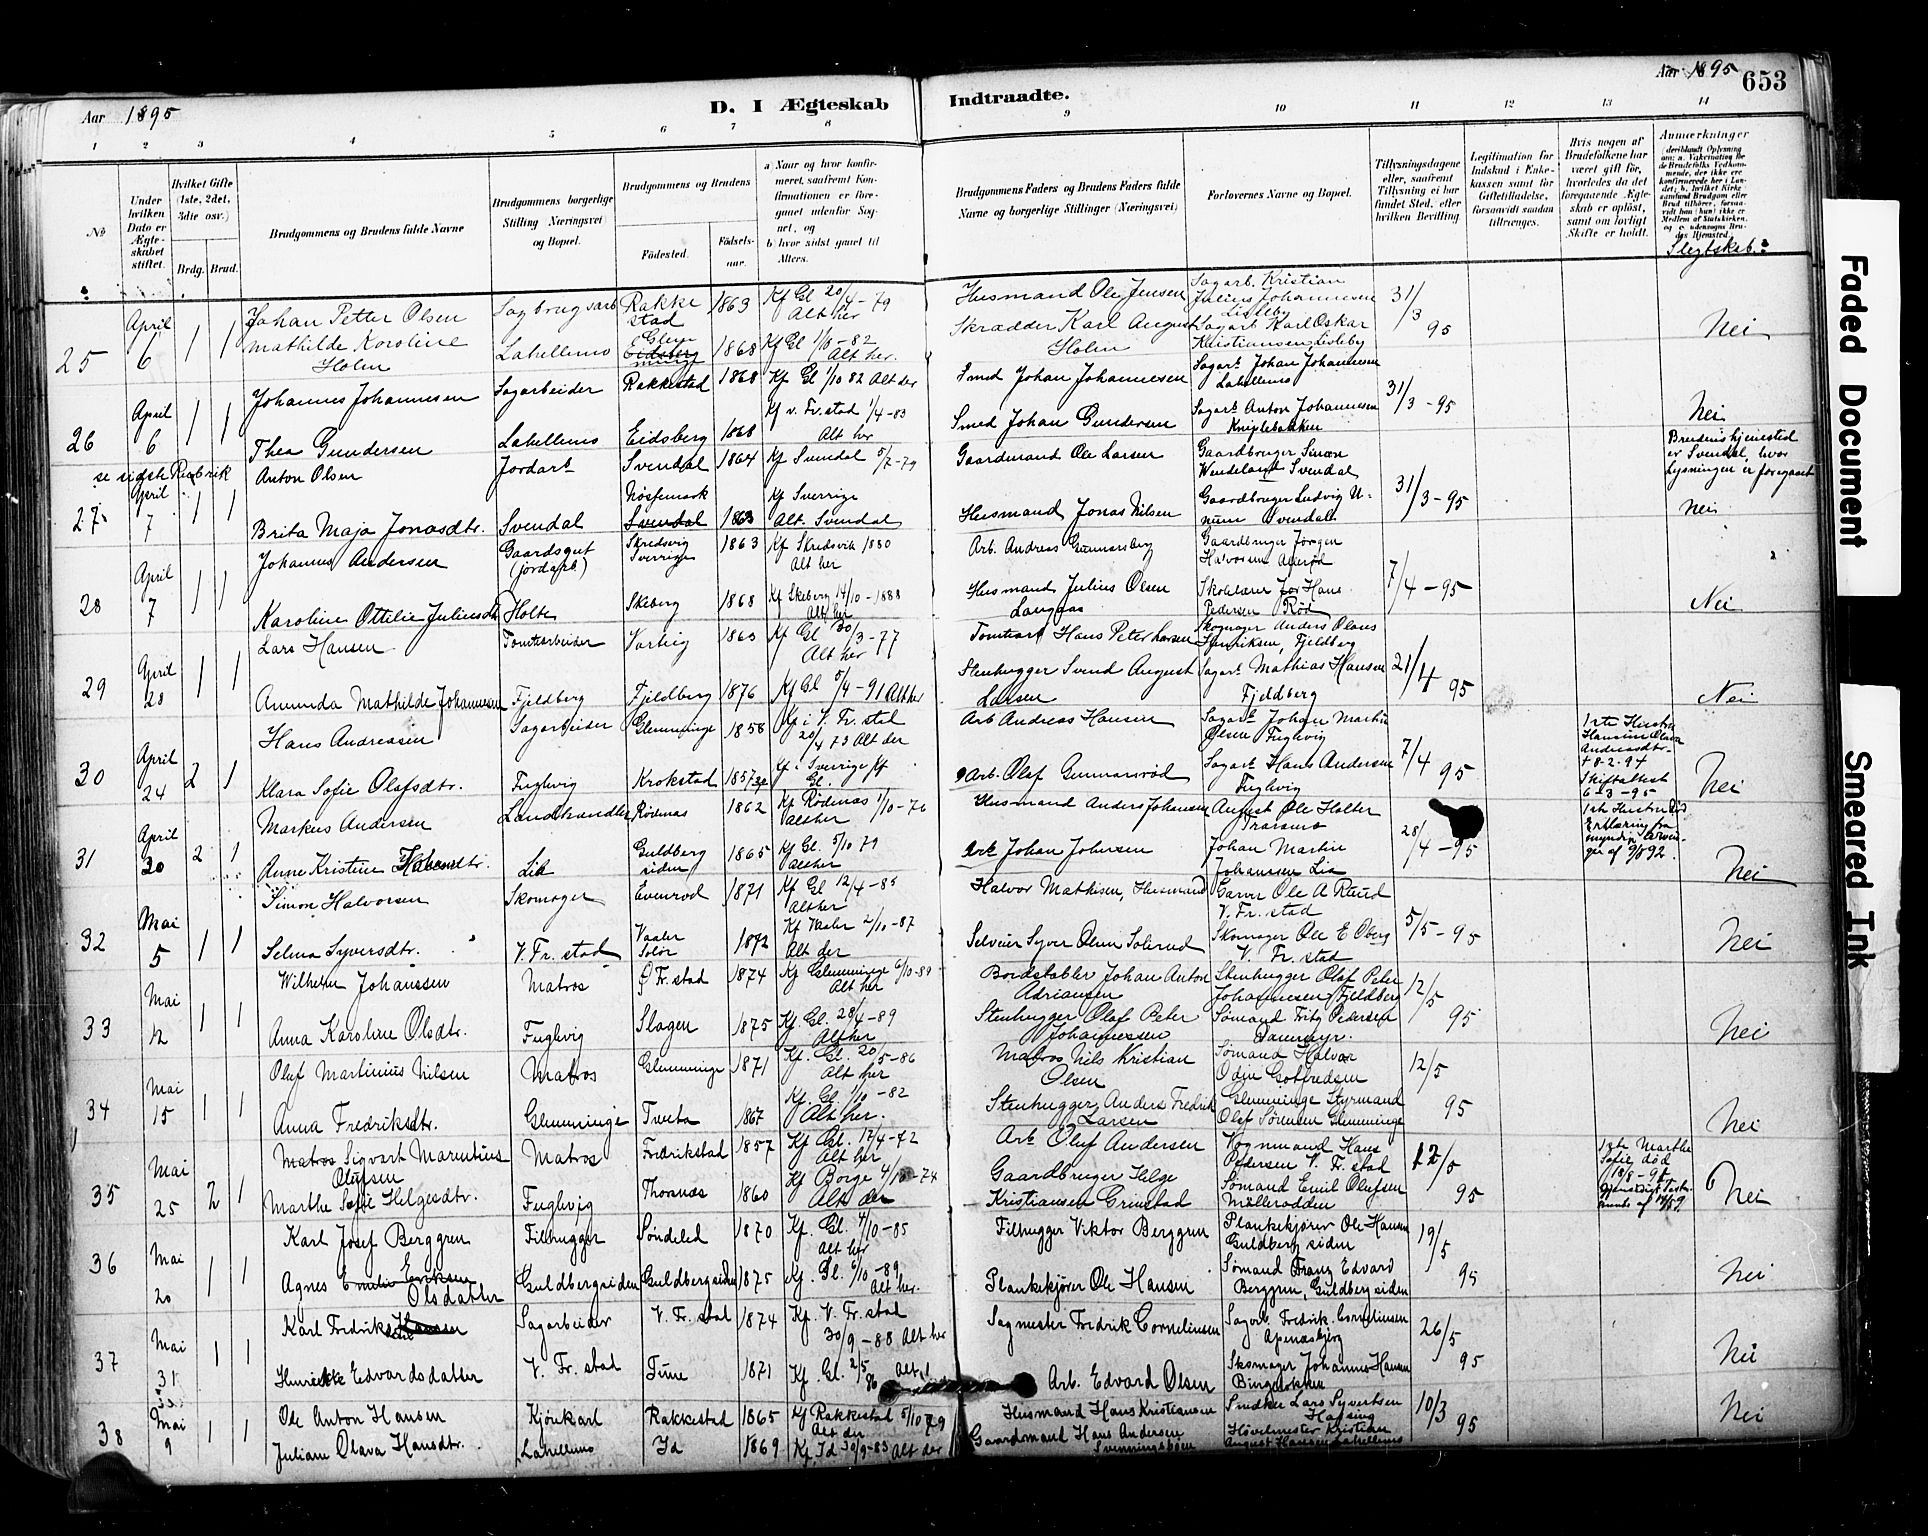 Aar 1895
D. I Ægteskab Indtraadte.
Aar 1895 653
1 2 3 4 5 6 7 8 9 10 11 12 13 14
No
Under hvilken Dato er Ægteskabet stiftet.
Hvilket Gifte (1ste, 2det, 3die osv.)
Brdg. Brud.
Brudgommens og Brudens fulde Navne
Brudgommens borgerlige Stilling Næringsvei og Bopæl.
Brudgommens og Brudens
Fødested.
Fødselsaar.
a) Naar og hvor konfirmeret, saafremt Konfirmationen er foregaaet udenfor Sognet, og
b) hvor sidst gaaet til Alters.
Brudgommens Faders og Brudens Faders fulde Navne og borgerlige Stillinger (Næringsvei)
Forlovernes Navne og Bopæl.
Tillysningsdagene eller, saafremt Tillysning ei har fundet Sted, efter hvilken Bevilling.
Legitimation for Indskud i Enkekassen samt for Giftetilladelse, forsaavidt saadan tiltrænges.
Hvis nogen af Brudefolkene har været gift før, hvorledes da det foregaaende Ægteskab er opløst, samt om lovligt Skifte er holdt.
Anmærkninger
Slegtskab?
25 April 6 1 1
Johan Petter Olsen Sagbrugsarb Rakkestad 1863 Kf Gl 20/4-79 Alt her Husmand Ole Jensen Sagarb. Kristian Julius Johannesen Lisleby 31/3 95 Nei
Mathilde Karoline Holm Lahellemo Eidsberg 1868 Kf Gl 1/10-82 Alt her. Skrædder Karl August Holm Sagarb Karl Oskar Kristiansen, Lisleby
26 April 6 1 1
Johannes Johannesen Sagarbeider Rakkestad 1868 Kf Gl 1/10 82 Alt der Smed Johan Johannesen Sagarb Johan Johannesen Lahellemo 31/3-95 Nei
Thea Gundersen Lahellemo Eidsberg 1868 Kf v. Fr.stad 1/4-83 Alt her Smed Johan Gundersen Sagarb Anton Johannesen Kniplebakken
se sidste Rubrik
27 April 7 1 1
Anton Olsen Jordarb Svendal 1864 Kf Svendal 5/7-79 Gaardmand Ole Larsen Gaardbruger Simon Svendal 31/3-95 Brudens hjemsted er Svendal, hvor Lysningen er foregaaet
Brita Maja Jonasdtr. Svendal Svendal 1863 Kf Sverrige Alt. Svendal Husmand Jonas Nilsen Gaardbruger Ludvig Svendal Nei
28 April 7 1 1
Johannes Andersen Gaardsgut (jordarb) Skredsvig Sverrige 1863 Kf Skredsvik 1880 Alt her Arb. Andreas Gunnarsberg Gaardbruger Jørgen Halvorsen 7/4-95 Nei
Karoline Ottilie Juliusdtr Holte Skeberg 1868 Kf Skeberg 14/10-1888 Alt her Husmand Julius Olsen Langaas Hans Pedersen Rød
29 April 28 1 1
Lars Hansen Tomtearbeider Varteig 1863 Kf Gl 30/3-77 Alt her Tomtearb Hans Peter Larsen Skomager Anders Olaus Henriksen, Fjeldberg 21/4 95 Nei
Amunda Mathilde Johannesen Fjeldberg Fjeldberg 1876 Kf Gl 5/4-91 Alt her Stenhugger Svend August Larsen Sagarb Mathias Hansen Fjeldberg
30 April 24 2 1
Hans Andreasen Sagarbeider Glemminge 1858 Kf i V. Fr. stad 20/4 73 Alt der Arb Andreas Hansen Sagarb Johan Martin Olsen Fuglevig 7/4 95 1ste Hustru Hansine Olava Andreasdtr. + 8-2-94 Skifteattest 6-3-95 Nei
Klara Sofie Olafsdtr. Fuglevig Krokstad 1857 Kf i Sverrige Gl. Arb. Olaf Gunnarsrød Sagarb Hans Andersen Fuglevig
31 April 20 2 1
Markus Andersen Landhandler Rødenes 1862 Kf Rødenes 1/10-76 altsher Husmand Anders Johansen August Ole Holter 28/4-95 Nei
Anne Kristine Johansdtr. Lia Guldbergsiden 1865 Kf Gl. 5/10 79 altsher Arb Johan Johnsen Johan Martin Johannsen Lia
32 Mai 5 1 1
Simon Halvorsen Skomager Evenrød 1871 Kf Gl 12/4-85 altsher Halvor Mathisen, Husmand Garver Ole A Ruud V. Fr. stad 5/5-95 Nei
Selma Syversdtr. V. Fr. stad Vaaler Solør 1872 Kf Vaaler 2/10-87 Alt der Selveier Syver Olsen Skomager Ole E Oberg V. Fr. stad
33 Mai 12 1 1
Wilhelm Johanssen Matros Ø Fr. stad 1874 Kf Glemminge 6/10-89 Alt her Bordstabler Johan Anton Adriansen Stenhugger Olaf Peter Johannesen Fjeldberg 12/5 95 Nei
Anna Karoline Olsdtr. Fuglevig Slagen 1875 Kf. Gl. 28/4-89 Alt her Stenhugger Olaf Peter Johannessen Sømand Fritz Pedersen
34 Mai 15 1 1
Oluf Martinius Nilsen Matros Glemminge 1871 Kf. Gl. 20/5-86 Alt her Matros Nils Kristian Olsen Sømand Halvor Odin Gotfredsen 12/5 95 Nei
Anna Fredriksdtr. Glemminge Tveta 1867 Kf. Gl 1/10-82 Alt her. Stenhugger Anders Fredrik Larsen Glemminge Styrmand Olaf Sørensen Glemminge
35 Mai 25 2 1
Matros Sigvart Marentius Olufsen Matros Fredrikstad 1857 Kf Gl. 14/4-72 Alt her Arb Oluf Andersen Vognmand Hans Pedersen V. Fr. stad 12/5 95 Nei
Marthe Sofie Helgesdtr. Fuglevig Thorsnes 1860 Kf Borge 4/10-74 Alt der Gaardbruger Helge Kristiansen Grimstad Sømand Emil Olufsen Mollerodden
36 Mai 20 1 1
Karl Josef Berggren Filhugger Søndeled 1870 Kf. Gl. 4/10-85 Alt her Filhugger Viktor Berggren Plankekjører Ole Hansen Guldbergsiden 19/5 95 Nei
Agnes Emilie Eriksen Olsdatter Guldbergsiden Guldbergsiden 1875 Kf. Gl. 6/10-89 Alt her. Plankekjører Ole Hansen Sømand Franz Edvard Berggren, Guldbergsiden
37 Mai 31 1 1
Karl Fredriksen Hansen Sagarbeider V. Fr. stad 1874 Kf. V. Fr. stad 30/9-88 Alt her Sagmester Fredrik Cornelinsen Sagarb. Fredrik Cornelinsen Apenesbjerg 26/5 95 Nei
Henrikke Edvardsdatter V. Fr. stad Tune 1871 Kf. Gl. 2/5 86 Alt Arb. Edvard Olsen Skomager Johannes Hansen
38 Mai 9 1 1
Ole Anton Hansen Kjørekarl Rakkestad 1865 Kf Rakkestad 5/10 79 Alt der Husmand Hans Kristiansen Snedker Lars Syvertsen 10/3 95 Nei
Juliane Olava Hansdtr. Lahellemo Id 1869 Kf. Id 30/9-83 Alt der Gaardmand Hans Andersen Høvelmester Kristian August Hansen, Lahellemo
Faded Document
Smeared Ink